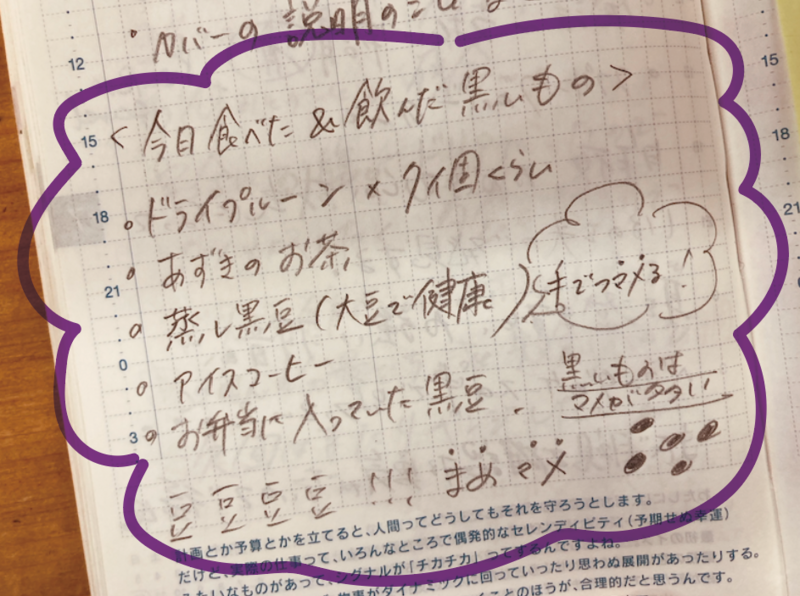 ・カバーの説明の
12
<今日食べた&飲んだ黒いもの>
15
15
18
18
。ドライプルーン×7、8個くらい
21
。あずきのお茶
21
。蒸し黒豆(大豆で健康)
手でつマメる!
0
。アイスコーヒー
黒いものは
マメがタタい
3
。お弁当に入っていた黒豆.
豆豆豆豆!!! まめマメ
計画とか予算とかを立てると、人間ってどうしてもそれを守ろうとします。
だけど、実際の仕事って、いろんなところで偶発的なセレンディピティ(予期せぬ幸運)
みたいなものがあって、シグナルが「チカチカ」ってするんですよね。
ダイナミックに回っていったり思わぬ展開があったりする。
ことのほうが、合理的だと思うんです。